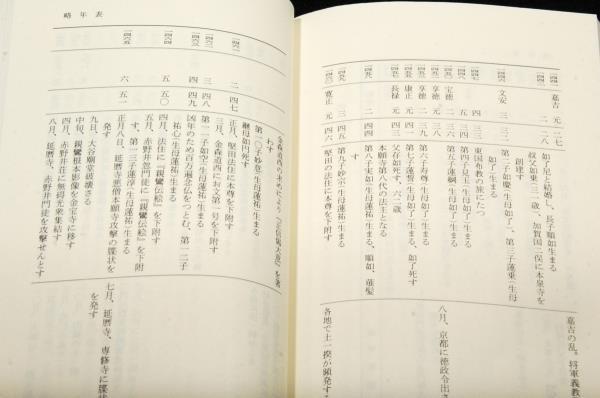 嘉吉 元 二七
嘉吉の乱。将軍義教
二 二八
如了尼と結婚し、長子順如生まる
叔父如乗三一歳、加賀国二俣に本泉寺を
創建す
文安 三 三二
第二子如慶(生母如了)、第三子蓮乗(生母
如了)生まる
四 三三
東国布教の旅にたつ
第四子見玉(生母如了)生まる
宝徳 二
第五子蓮綱(生母如了)生まる
享徳 元
享徳 三
康正 元
第六子寿尊(生母如了)生まる
第七子蓮誓(生母如了)生まる、如了死す
八月、京都に徳政令出さ
長禄 元 四三
父存如死す、六二歳
本願寺第八代の法主となる
二 四四
第八子実如(生母蓮祐)生まる、順如、薙髪
す
三 四五
第九子妙宗(生母蓮祐)生まる
各地で土一揆が頻発する
寛正 元 四六
堅田の法住に本尊を下附す
略年表
金森道西の求めにより『正信偈大意』を著
わす
第一〇子妙意(生母蓮祐)生まる
継母如円死す
一四六一 二 四七
正月、堅田法住に本尊を下附す
三月、金森道西にお文第一号を下附す
一四六二 三 四八
第一一子如空(生母蓮祐)生まる
一四六三 四 四九
凶年のため百万遍念仏をつとむ、第一二子
祐心(生母蓮祐)生まる
一四六四 五 五〇
四月、法住に『親鸞伝絵』を下附す
五月、赤野井門徒に『親鸞伝絵』を下附
す、第一三子蓮淳(生母蓮祐)生まる
一四六五 六 五一
正月八日、延暦寺悪僧本願寺攻撃の牒状を
発す
七月、延暦寺、専修寺に牒状
を発す
九日、大谷廟堂破壊さる
中旬、親鸞根本影像を金宝寺に移す
四月、赤野井荘に無碍光衆集結す
八月、延暦寺、赤野井門徒を攻撃せんとす